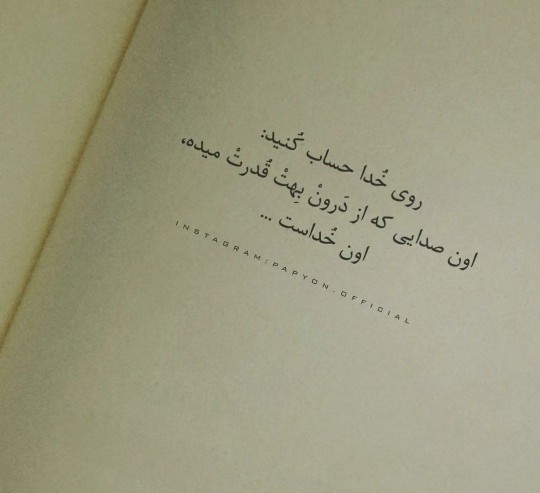 روی خُدا حساب کُنید:
اون صدایی که از دَرونْ بِهتْ قُدرتْ میده،
اون خُداست ...
INSTAGRAM:PAPYON.OFFICIAL